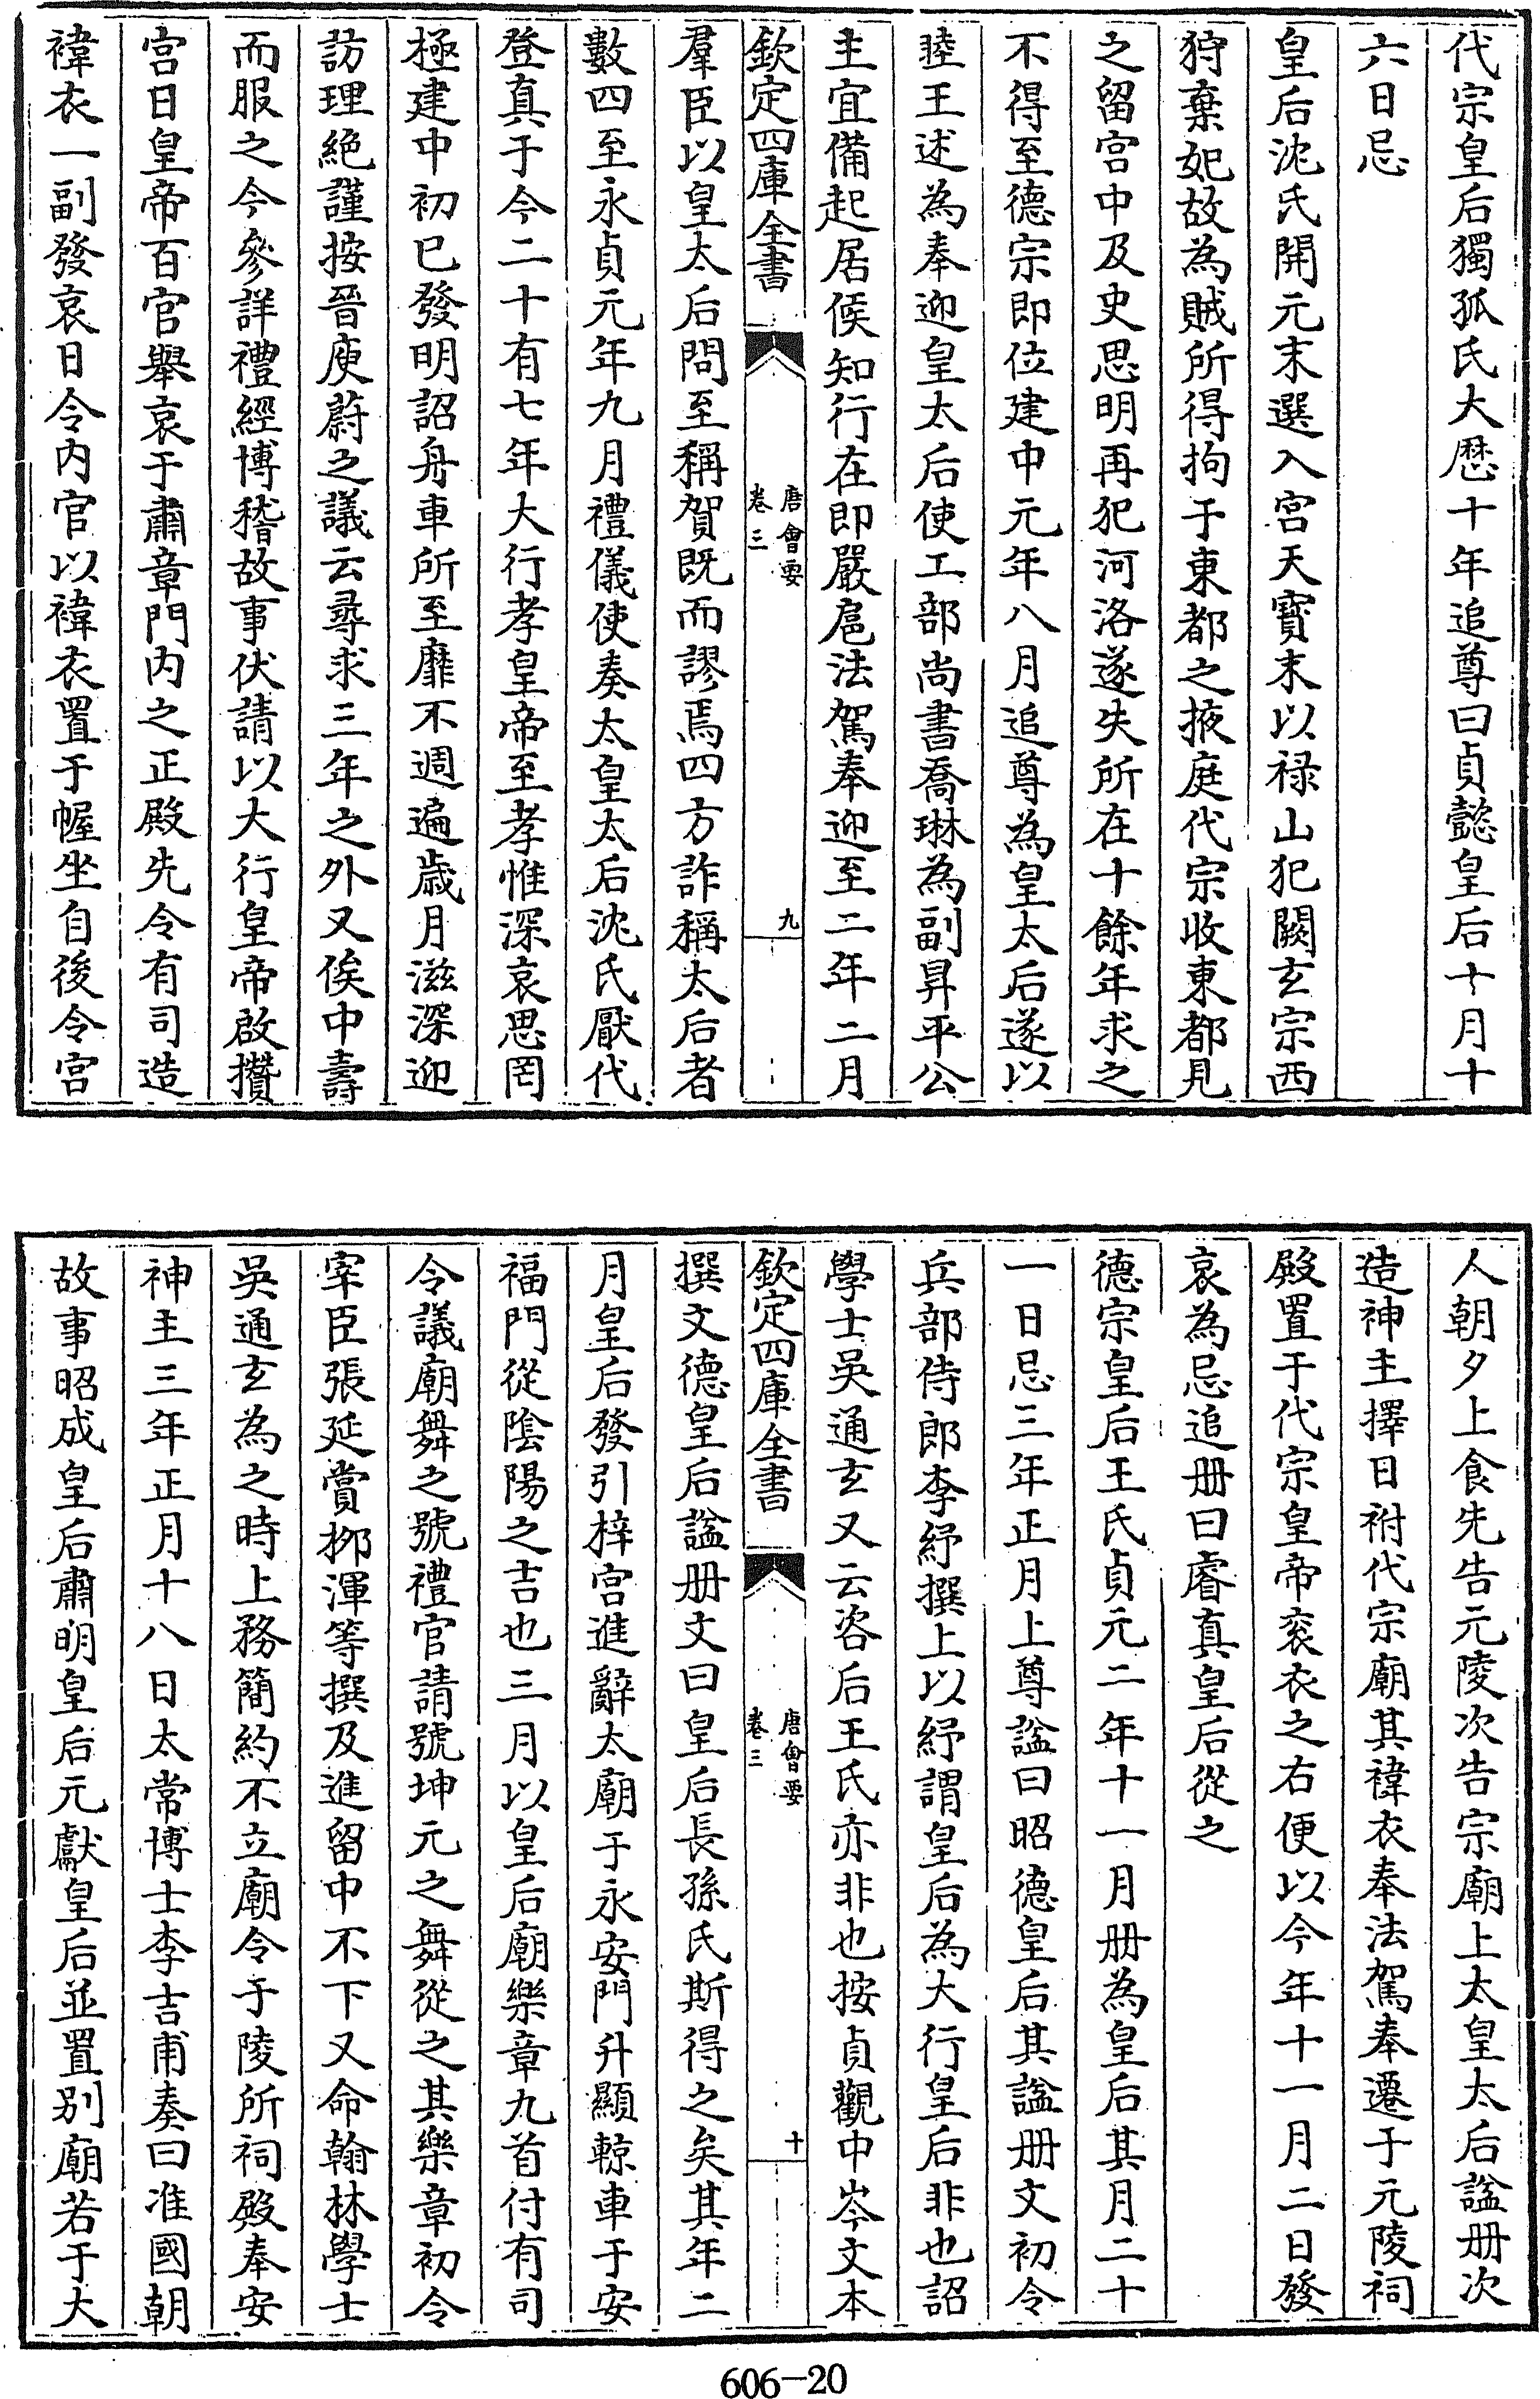 代宗皇后獨孤氏大厯十年追尊曰貞懿皇后十月十
六日忌
皇后沈氏開元末選入宮天寳末以禄山犯闕玄宗西
狩棄妃故為賊所得拘于東都之掖庭代宗收東都見
之留宮中及史思明再犯河洛遂失所在十餘年求之
不得至德宗即位建中元年八月追尊為皇太后遂以
睦王述為奉迎皇太后使工部尚書喬琳為副昇平公
主宜備起居候知行在即嚴扈法駕奉迎至二年二月
欽定四庫全書
唐會要
卷三
九
羣臣以皇太后問至稱賀既而謬焉四方詐稱太后者
數四至永貞元年九月禮儀使奏太皇太后沈氏厭代
登真于今二十有七年大行孝皇帝至孝惟深哀思罔
極建中初已發明詔舟車所至靡不週遍歲月滋深迎
訪理絶謹按晉庾蔚之議云尋求三年之外又俟中壽
而服之今參詳禮經博稽故事伏請以大行皇帝啟攢
宮日皇帝百官舉哀于肅章門内之正殿先令有司造
褘衣一副發哀日令内官以褘衣置于幄坐自後令宮
人朝夕上食先告元陵次告宗廟上太皇太后諡册次
造神主擇日祔代宗廟其褘衣奉法駕奉遷于元陵祠
殿置于代宗皇帝衮衣之右便以今年十一月二日發
哀為忌追册曰睿真皇后從之
德宗皇后王氏貞元二年十一月册為皇后其月二十
一日忌三年正月上尊諡曰昭德皇后其諡册文初令
兵部侍郎李紓撰上以紓謂皇后為大行皇后非也詔
學士吳通玄又云咨后王氏亦非也按貞觀中岑文本
欽定四庫全書
唐會要
卷三
十
撰文德皇后諡册文曰皇后長孫氏斯得之矣其年二
月皇后發引梓宮進辭太廟于永安門升顯輬車于安
福門從隂陽之吉也三月以皇后廟樂章九首付有司
令議廟舞之號禮官請號坤元之舞從之其樂章初令
宰臣張延賞栁渾等撰及進留中不下又命翰林學士
吳通玄為之時上務簡約不立廟令于陵所祠殿奉安
神主三年正月十八日太常博士李吉甫奏曰准國朝
故事昭成皇后肅明皇后元獻皇后並置别廟若于大
606-20